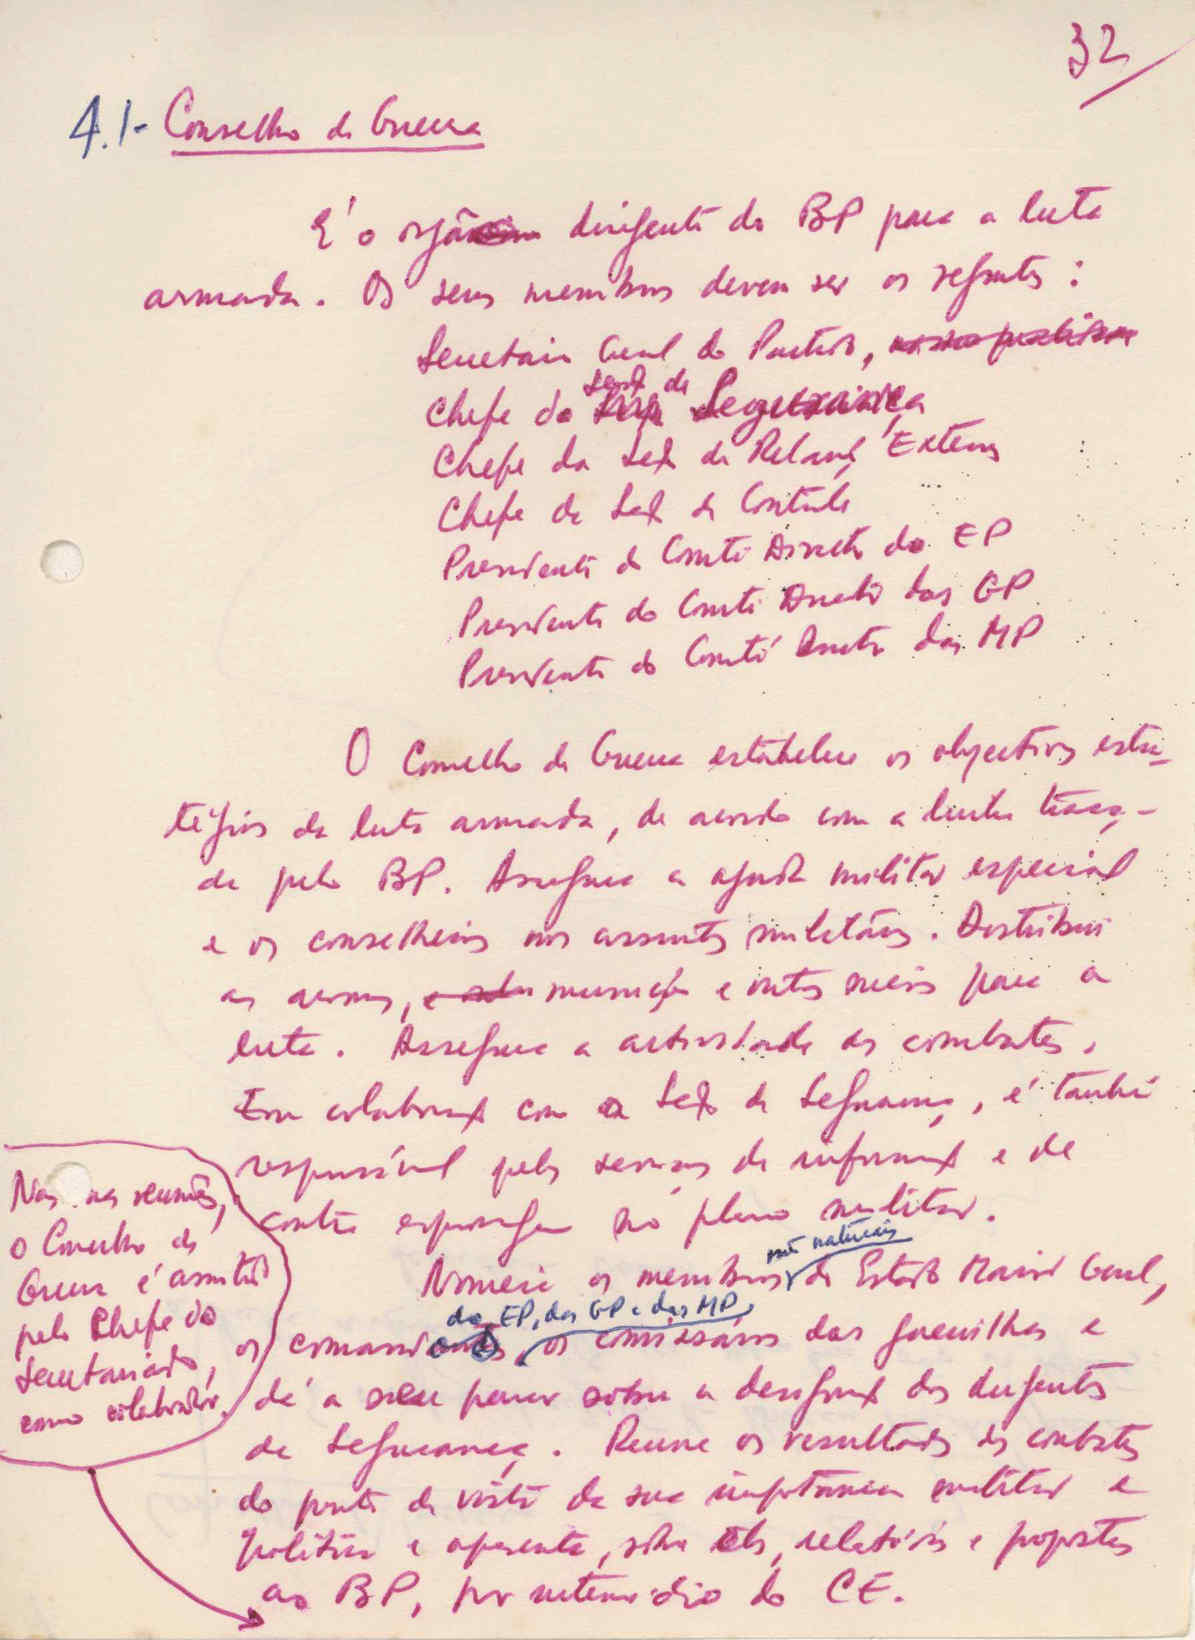 32
4.1- Conselho de Guerra
É o orgão dirigente do BP para a luta
armada. Os seus membros devem ser os seguintes:
Secretario Geral do Partido,
Chefe da Secç de Segurança
Chefe da Secç de Relaç Externas
Chefe da Secç de Controle
Presidente do Comité Director do EP
Presidente do Comité Director das GP
Presidente do Comité Director das MP
O Conselho de Guerra estabelece os objectivos estra-
tégicos da luta armada, de acordo com a linha traça-
da pelo BP. Assegura a ajuda militar especial
e os conselheiros nos assuntos militares. Distribui
as armas, munição e outros meios para a
luta. Assegura a actividade de combates.
Em colaboraç com a Secç de Segurança, é també
responsável pelos serviços de informaç e de
contra espionagem no plano militar.
Nomeia os membros não naturais do Estado Maior Geral,
os comandantes do EP, das GP e das MP, os comissários das guerrilhas e
dá o seu parecer sobre a designaç dos dirigentes
de Segurança. Reune os resultados dos combates
do ponto de vista da sua importância militar e
politica e apresenta, sobre eles, relatórios e propostas
ao BP, por intermédio do CE.
Nas suas reuniões,
o Conselho de
Guerra é assistido
pelo Chefe do
Secretariado,
como colaborador.